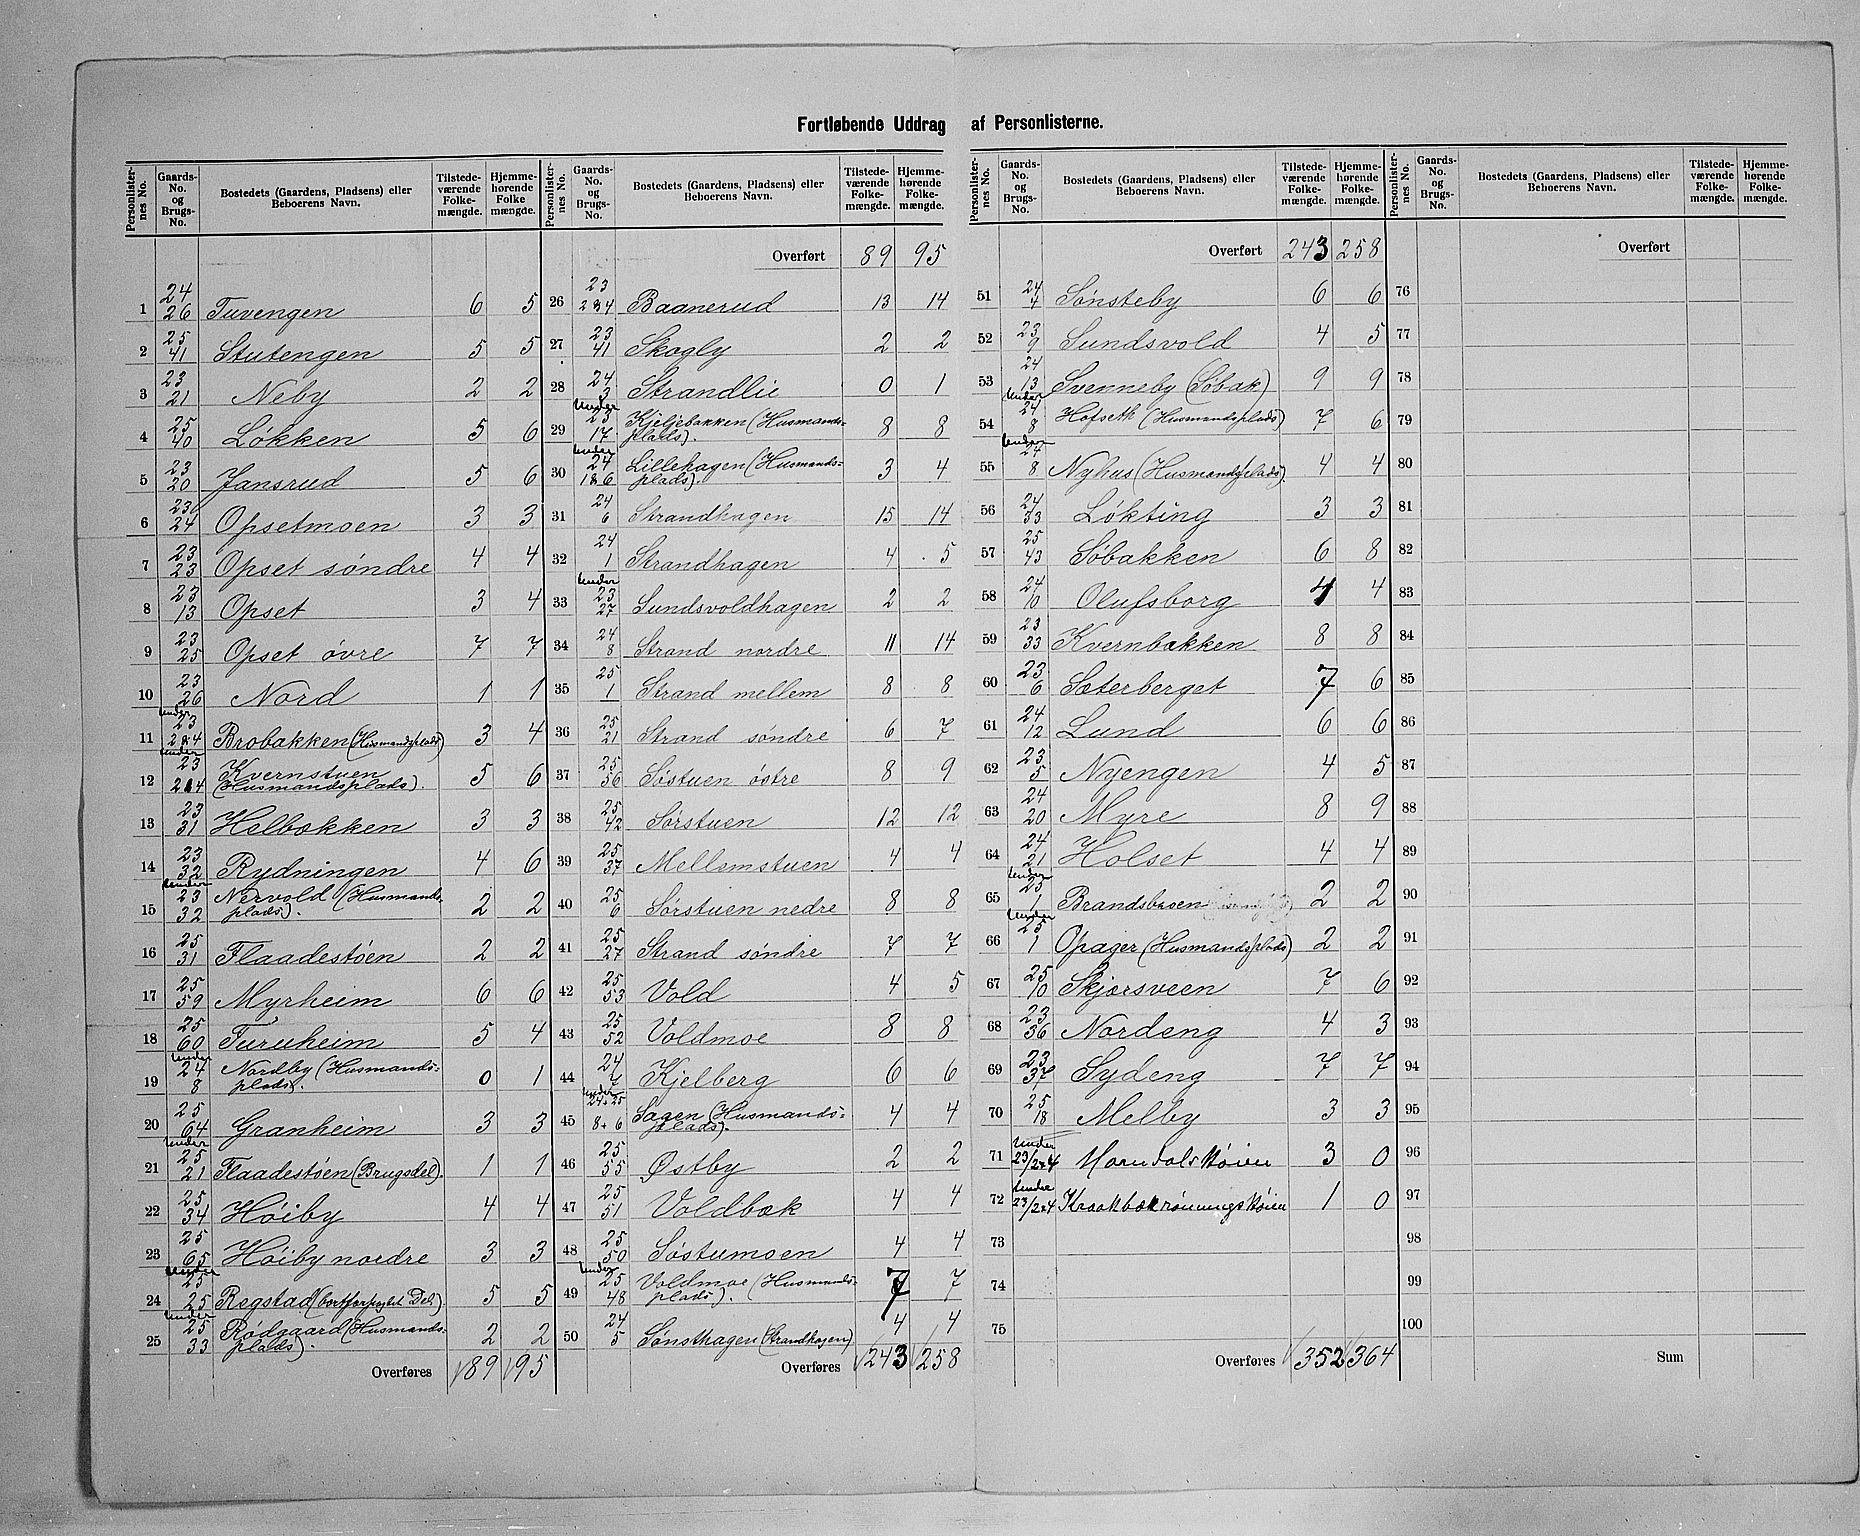 Fortløbende Uddrag af Personlisterne.
Personlister-nes No. Gaards-No. og Brugs-No. Bostedets (Gaardens, Pladsens) eller Beboerens Navn. Tilstede-værende Folke-mængde. Hjemme-hørende Folke mængde.
1 24/26 Tuvengen 6 5
2 25/41 Stutengen 5 5
3 23/21 Neby 2 2
4 25/40 Løkken 5 6
5 23/20 Jansrud 5 6
6 23/24 Opsetmoen 3 3
7 23/23 Opset søndre 4 4
8 23/13 Opset 3 4
9 23/25 Opset øvre 7 7
10 23/26 Nord 1 1
11 Under 23/2&4 Brobakken (Husmandsplads) 3 4
12 Under 23/2&4 Kvernstuen (Husmandsplads). 5 6
13 23/31 Helbækken 3 3
14 23/32 Rydningen 4 6
15 Under 23/32 Nervold (Husmands-plads). 2 2
16 25/31 Flaadestøen 2 2
17 25/59 Myrheim 6 6
18 25/60 Furuheim 5 4
19 Under 24/8 Nordby (Husmands-plads). 0 1
20 25/64 Granheim 3 3
21 Under 25/21 Flaadestøen (Brugsdel). 1 1
22 25/34 Høiby 4 4
23 25/65 Høiby nordre 3 3
24 Under 25/25 Regstad (bortforpagtet Del) 5 5
25 Under 25/33 Rødgaard (Husmands-plads). 2 2
Overføres 89 95
Personlister-nes No. Gaards-No. og Brugs-No. Bostedets (Gaardens, Pladsens) eller Beboerens Navn. Tilstede-værende Folke-mængde. Hjemme-hørende Folke-mængde.
Overført 89 95
26 23/2&4 Baanerud 13 14
27 23/41 Skogly 2 2
28 24/3 Strandlie 0 1
29 Under 23/17 Kjeljebakken (Husmands-plads). 8 8
30 Under 24/1&6 Lillehagen (Husmands-plads). 3 4
31 24/6 Strandhagen 15 14
32 24/1 Strandhagen 4 5
33 Under 23/27 Sundsvoldhagen 2 2
34 24/8 Strand nordre 11 14
35 25/1 Strand mellem 8 8
36 25/21 Strand søndre 6 7
37 25/56 Søstuen østre 8 9
38 25/42 Sørstuen 12 12
39 25/37 Mellemstuen 4 4
40 25/6 Sørstuen nedre 8 8
41 25/27 Strand søndre 7 7
42 25/53 Vold 4 5
43 25/52 Voldmoe 8 8
44 24/7 Kjelberg 6 6
45 Under 24+25/8+6 Sagen (Husmands-plads). 4 4
46 25/55 Østby 2 2
47 25/51 Voldbæk 4 4
48 25/50 Søstumoen 4 4
49 Under 25/48 Voldmoe (Husmands-plads). 7 7
50 24/5 Sønsthagen (Strandhagen) 4 4
Overføres 243 258
Personlister-nes No. Gaards-No. og Brugs-No. Bostedets (Gaardens, Pladsens) eller Beboerens Navn. Tilstede-værende Folke-mængde. Hjemme-hørende Folke-mængde.
Overført 243 258
51 24/4 Sønsteby 6 6
52 23/9 Sundsvold 4 5
53 24/13 Svenneby (Søbak) 9 9
54 Under 24/8 Hofseth (Husmandsplads) 7 6
55 Under 24/8 Nyhus (Husmandsplads). 4 4
56 24/33 Løkting 3 3
57 25/43 Søbakken 6 8
58 24/10 Olufsborg 4 4
59 23/33 Kvernbækken 8 8
60 23/6 Sæterberget 7 6
61 24/12 Lund 6 6
62 23/5 Nyengen 4 5
63 24/20 Myre 8 9
64 24/21 Holset 4 4
65 Under 25/1 Brandsbraaen 2 2
66 Under 25/1 Opager (Husmandsplads) 2 2
67 25/10 Skjærsveen 7 6
68 23/36 Nordeng 4 3
69 23/37 Sydeng 7 7
70 25/18 Melby 3 3
71 Under 23/2&4 3 0
72 Under 23/2&4 1 0
73
74
75
Overføres 352 364
Personlister-nes No. Gaards-No. og Brugs-No. Bostedets (Gaardens, Pladsens) eller Beboerens Navn. Tilstede-værende Folke-mængde. Hjemme-hørende Folke-mængde.
Overført
76
77
78
79
80
81
82
83
84
85
86
87
88
89
90
91
92
93
94
95
96
97
98
99
100
Sum